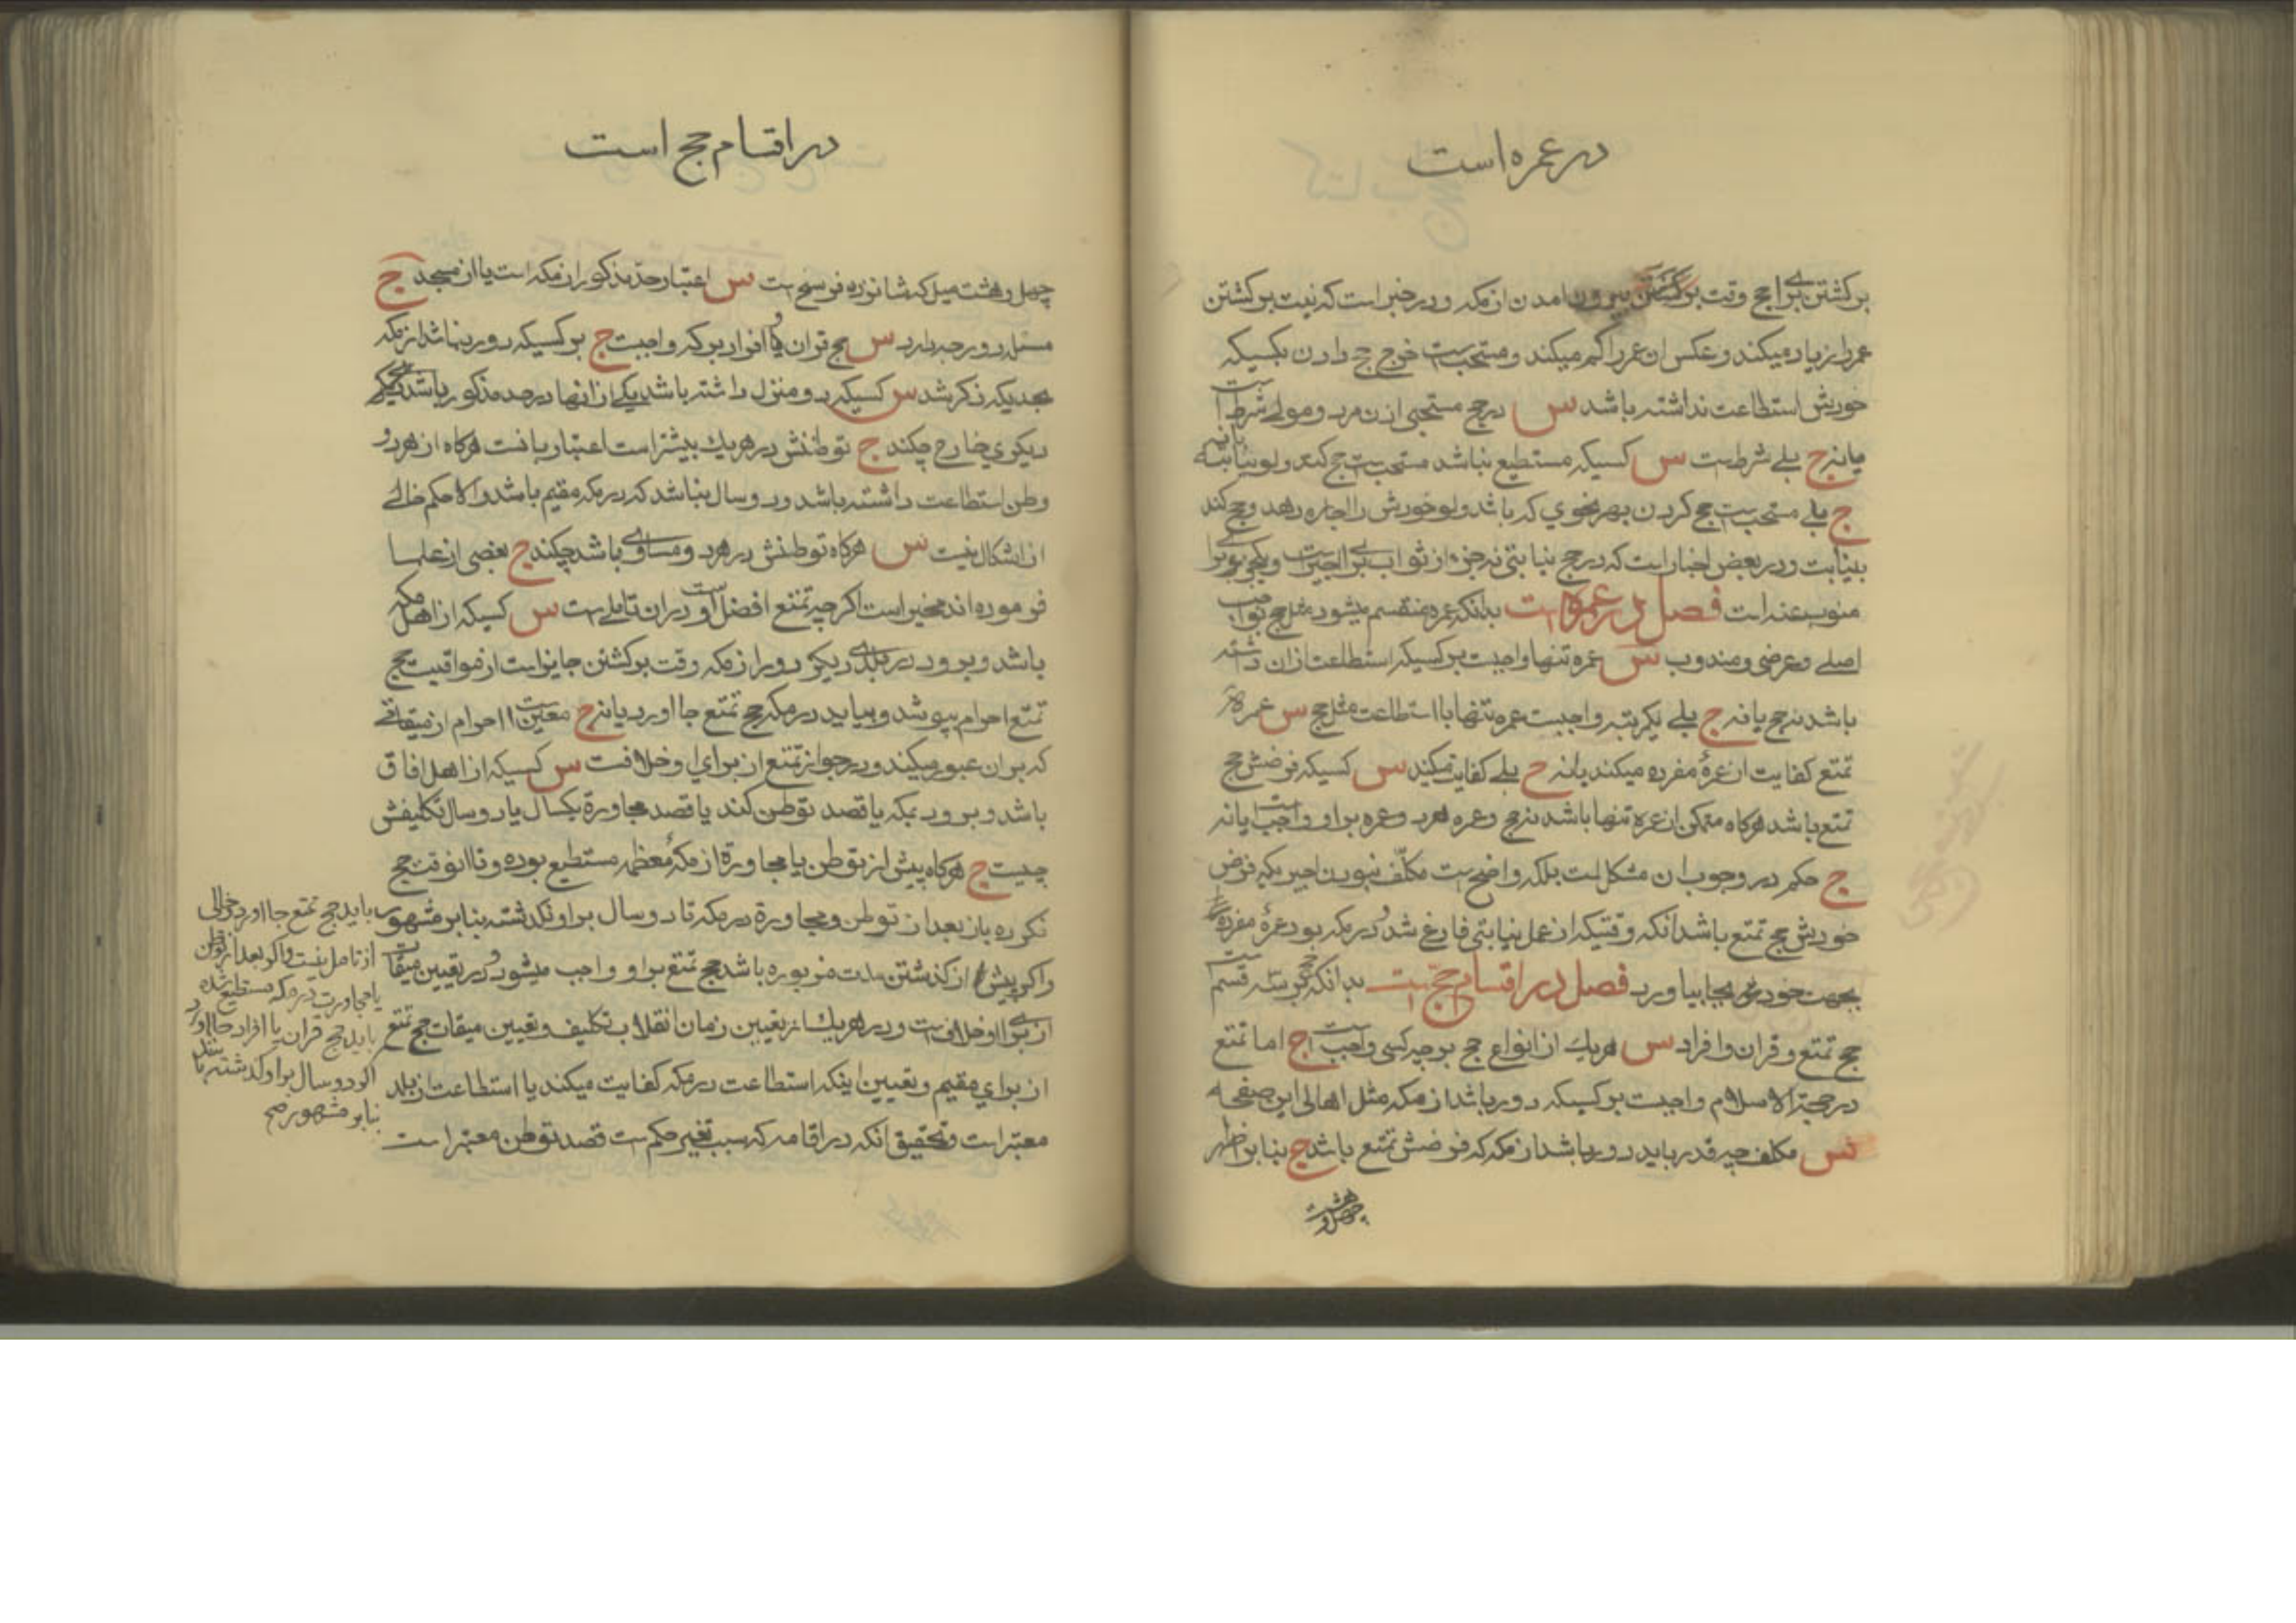 در عمره است
برکشتن برای حج وقت بیرون امدن از مکه و در خبر است که نیت برکشتن
عمر را زیاد میکند و عکس ان عمر را کم میکند و مستحب است خرج حج دادن بکسیکه
خودش استطاعت نداشته باشد س در حج مستحبی اذن مرد و مولی شرط است
یا نه ج بلی شرط است س کسیکه مستطیع نباشد مستحب است حج کند و لو بنیابت یا نه
ج بلی مستحب است حج کردن بهر نحوی که باشد و لو خودش را اجاره دهد و حج کند
بنیابت و در بعض اخبار است که در حج نیابتی نه جزء از ثواب برای اجیر است و یکی برای
منوب عنه است فصل در عمره است بدانکه عمره منقسم میشود مثل حج بواجب
اصلی و عرضی و مندوب س عمره تنها واجبست بر کسیکه استطاعت از ان داشته
باشد نه حج یا نه ج بلی یکمرتبه واجبست عمره تنها با استطاعت مثل حج س عمرهٔ
تمتع کفایت از عمرهٔ مفرده میکند یا نه ج بلی کفایت میکند س کسیکه فرضش حج
تمتع باشد هرکاه متمکن از عمره تنها باشد نه حج و عمره هر دو عمره بر او واجب است یا نه
ج حکم در وجوب ان مشکل است بلکه واضح است مکلف نبودن اجیریکه فرض
خودش حج تمتع باشد انکه وقتیکه از عمل نیابتی فارغ شد و در مکه بود عمرهٔ مفرده
بجهت خودش بجا بیاورد فصل در اقسام حج است بدانکه حج بر سه قسم است
حج تمتع و قران و افراد س هریک از انواع حج بر چه کسی واجب است ج اما تمتع
در حجة الاسلام واجبست بر کسیکه دور باشد از مکه مثل اهالی این صفحه
س مکلف چه قدر باید دور باشد از مکه که فرضش تمتع باشد ج بنابر اظهر
چهل و هشت
در اقسام حج است
چهل و هشت میل که شانزده فرسخ است س اعتبار حد مذکور از مکه است یا از مسجد ج
مسئله دو وجه دارد س حج قران و یا افراد بر که واجبست ج بر کسیکه دور نباشد از مکه
بحدیکه ذکر شد س کسیکه دو منزل داشته باشد یکی از انها در حد مذکور باشد و یکی
دیکری خارج چکند ج توطنش در هریک بیشتر است اعتبار بانست هرکاه از هر دو
وطن استطاعت داشته باشد و دو سال نباشد که در مکه مقیم باشد و الا حکم خالی
از اشکال نیست س هرکاه توطنش در هر دو مساوی باشد چکند ج بعضی از علما
فرموده اند مخیر است اکرچه تمتع افضل است و در ان تاملی است س کسیکه از اهل مکه
باشد و برود در بلدی دیکر دور از مکه وقت برکشتن جایز است از مواقیت حج
تمتع احرام بپوشد و بیاید در مکه حج تمتع جا اورد یا نه ج معین است احرام از میقاتی
که بر ان عبور میکند و در جواز تمتع از برای او خلافست س کسیکه از اهل افاق
باشد و برود بمکه یا قصد توطن کند یا قصد مجاورة یکسال یا دو سال تکلیفش
چیست ج هرکاه پیش از توطن یا مجاورة از مکهٔ معظمه مستطیع بوده و تا انوقت حج
نکرده باز بعد از توطن و مجاورة در مکه تا دو سال بر او نکذشته بنابر مشهور
و اکر پیش از کذشتن مدت مزبوره باشد حج تمتع بر او واجب میشود و در تعیین میقات
از برای او خلاف است و در هریک از تعیین زمان انقلاب تکلیف و تعیین میقات حج تمتع
از برای مقیم و تعیین اینکه استطاعت در مکه کفایت میکند یا استطاعت از بلد
معتبر است و تحقیق انکه در اقامه که سبب تغیر حکم است قصد توطن معتبر است
باید حج تمتع جا اورد و خالی
از تامل نیست و اکر بعد از توطن
یا مجاورت در مکه مستطیع شده
باید حج قران یا افراد جا اورد
اکر دو سال بر او کذشته باشد
بنابر مشهور صح